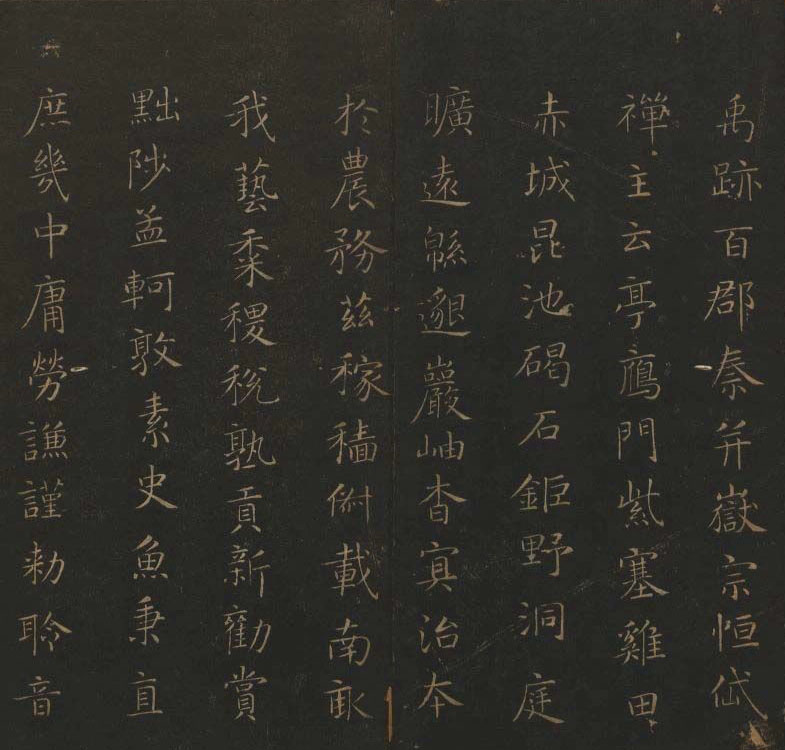 禹跡百郡秦并嶽宗恒岱
禪主云亭鴈門紫塞雞田
赤城昆池碣石鉅野洞庭
曠遠緜邈巖岫杳冥治本
扵農務茲稼穡俶載南畝
我藝黍稷稅熟貢新勸賞
黜陟孟軻敦素史魚秉直
庶幾中庸勞謙謹勅聆音